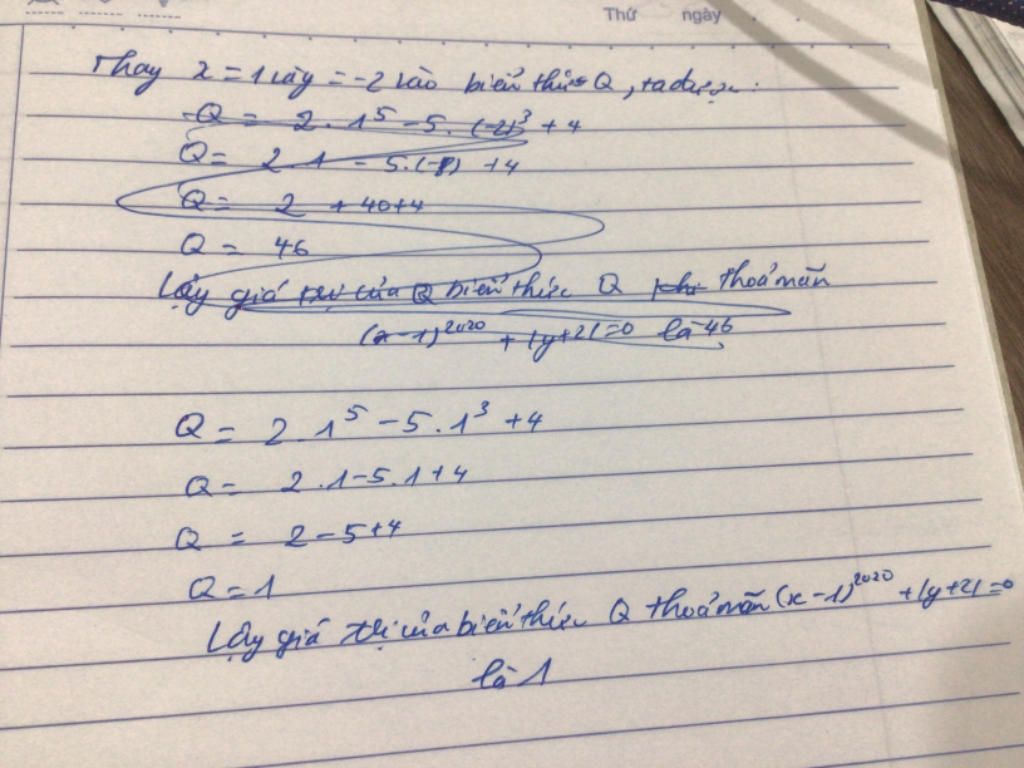 Thứ ngày
Thay x = 1 và y = -2 vào biểu thức Q, ta được:
Q = 2 . 1⁵ - 5 . (-2)³ + 4
Q = 2 . 1 - 5 . (-8) + 4
Q = 2 + 40 + 4
Q = 46
Vậy giá trị của Q biểu thức Q khi thoả mãn
(x-1)²⁰²⁰ + |y+2| = 0 là 46
Q = 2 . 1⁵ - 5 . 1³ + 4
Q = 2 . 1 - 5 . 1 + 4
Q = 2 - 5 + 4
Q = 1
Vậy giá trị của biểu thức Q thoả mãn (x-1)²⁰²⁰ + |y+2| = 0
là 1